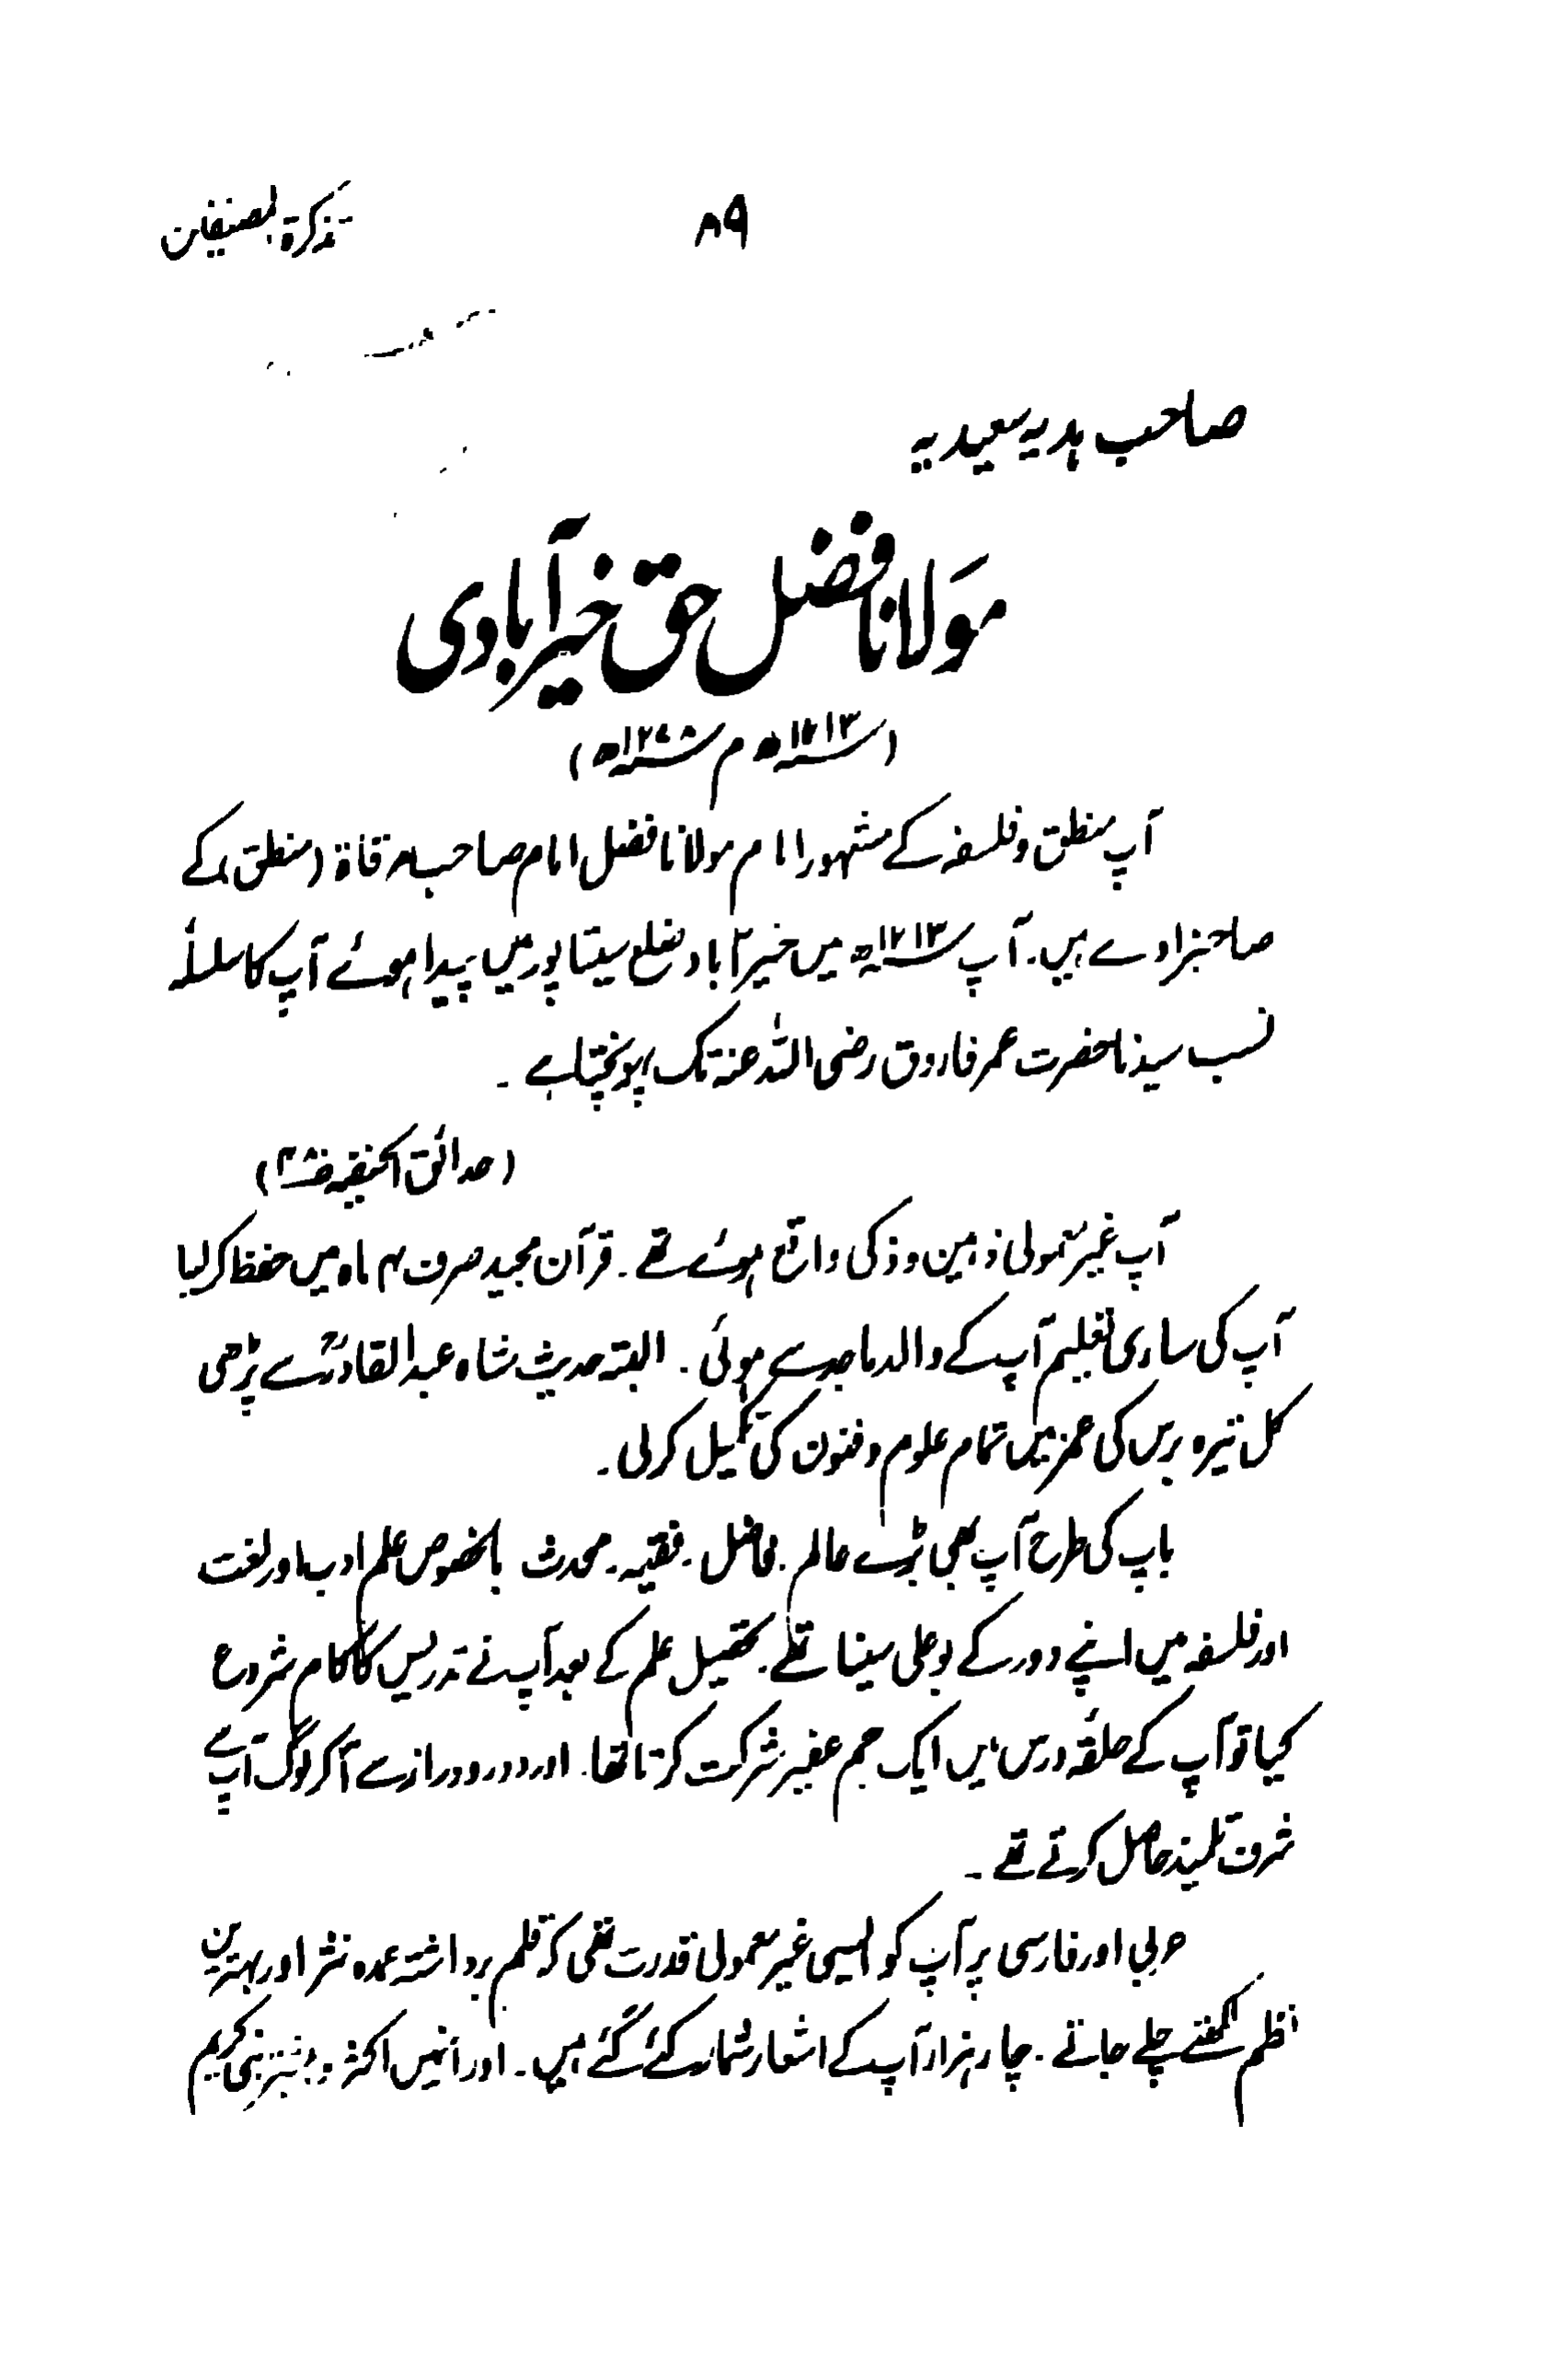 ۸۹ تذکرۃ المصنفین
صاحب ہدیہ سعیدیہ
مَولانا فضل حق خیرآبادی
(۱۲۱۳ھ م ۱۲۷۸ھ)
آپ منطق و فلسفہ کے مشہور امام مولانا فضل امام صاحب مرقاۃ (منطق) کے
صاحبزادے ہیں۔ آپ ۱۲۱۳ھ میں خیرآباد ضلع سیتاپور میں پیدا ہوئے آپ کا سلسلۂ
نسب سیدنا حضرت عمر فاروق رضی اللہ عنہ تک پہونچتا ہے۔
(حدائق الحنفیہ)
آپ غیر معمولی ذہین و ذکی واقع ہوئے تھے۔ قرآن مجید صرف ۴ ماہ میں حفظ کر لیا
آپ کی ساری تعلیم آپ کے والد ماجد سے ہوئی۔ البتہ حدیث شاہ عبدالقادرؒ سے پڑھی
کل تیرہ برس کی عمر میں تمام علوم و فنون کی تکمیل کر لی۔
باپ کی طرح آپ بھی بڑے عالم۔ فاضل۔ فقیہ۔ محدث بالخصوص علم ادب اور لغت
اور فلسفہ میں اپنے دور کے بوعلی سینا تھے۔ تحصیل علم کے بعد آپ نے تدریس کا کام شروع
کیا تو آپ کے حلقۂ درس میں ایک جم غفیر شرکت کرتا تھا۔ اور دور و دراز سے آ کر لوگ آپ سے
شرف تلمیذ حاصل کرتے تھے۔
عربی اور فارسی پر آپ کو ایسی غیر معمولی قدرت تھی کہ قلم برداشتہ عمدہ نثر اور بہترین
نظم لکھتے چلے جاتے۔ چار ہزار آپ کے اشعار شمار کئے گئے ہیں۔ اور انہیں اکثر و بیشتر نبی کریم